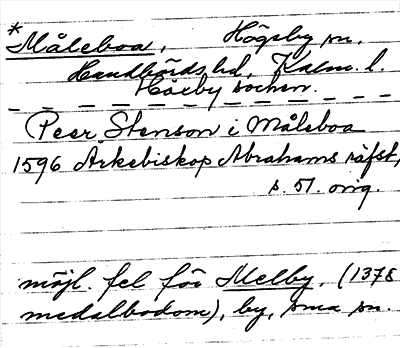 *
Måleboa, Högsby sn,
Handbörds hd, Kalm. l.
Högsby socken.
Peer Stenson i Måleboa
1596 Ärkebiskop Abrahams räfst,
s. 51. orig.
möjl. fel för Melby, (1378
medalbodom), by, sma sn.